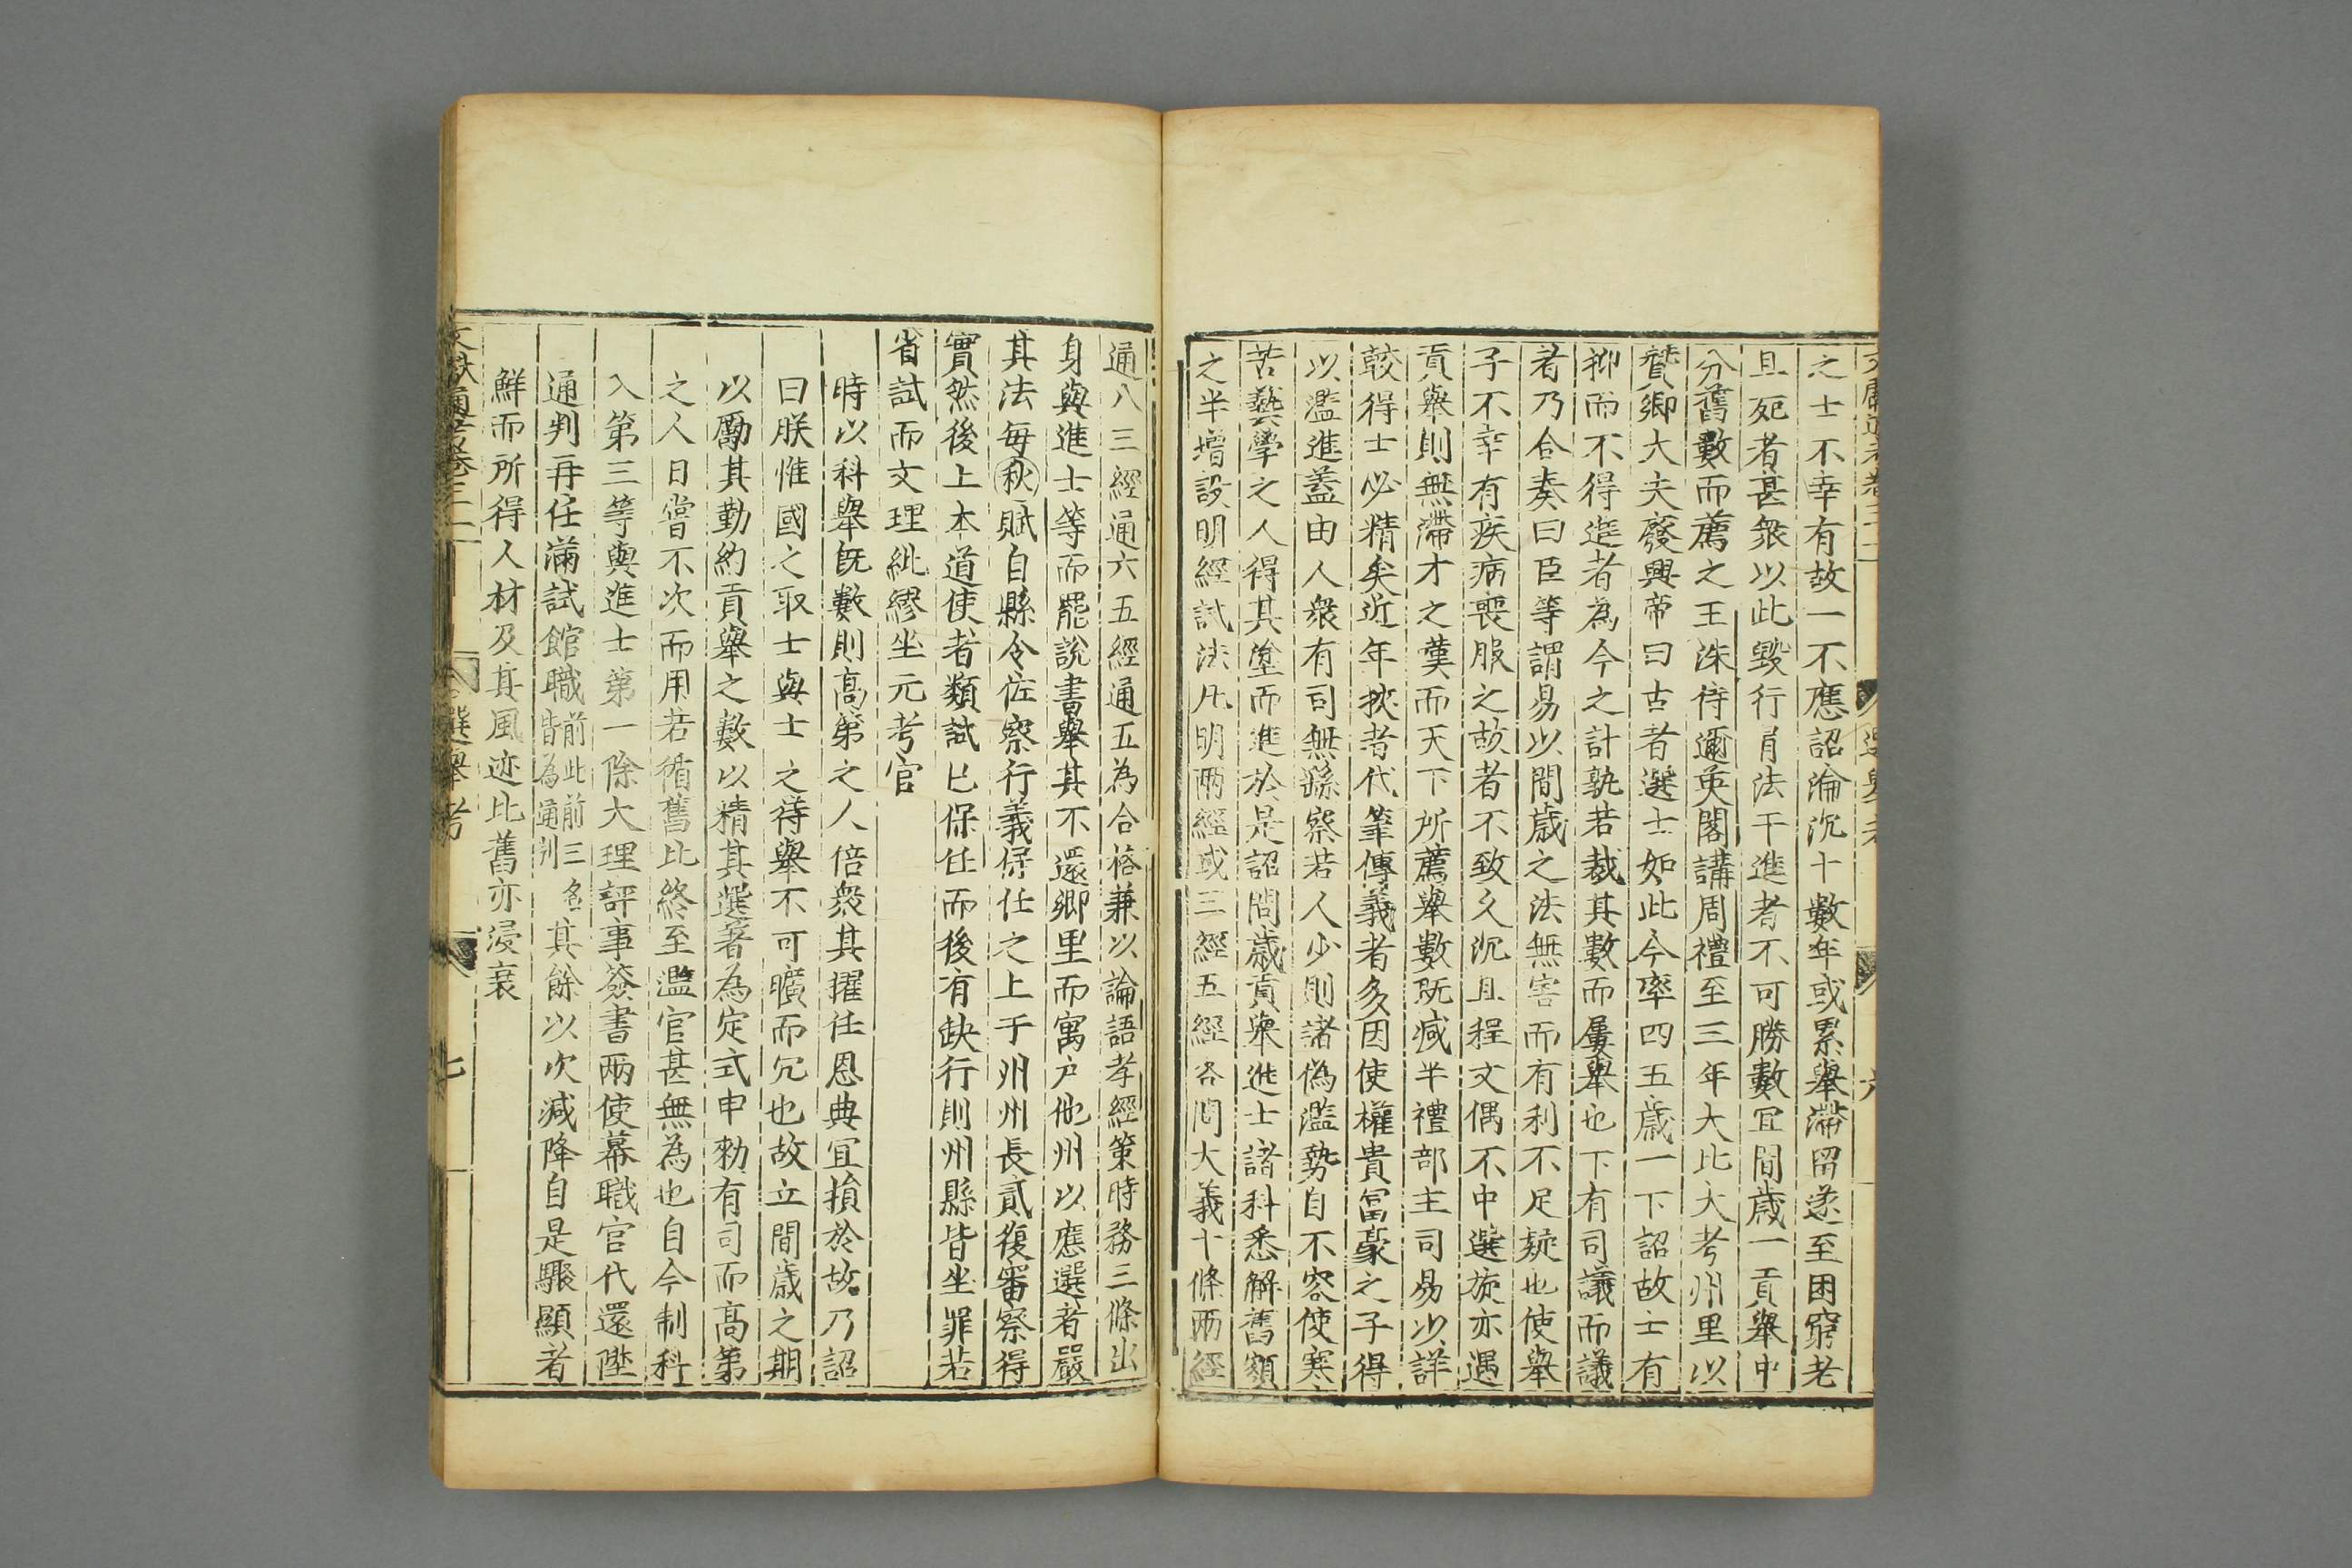 之士不幸有故一不應詔淪沉十數年或累舉滯留遂至困窮老
且死者甚衆以此毀行肖法干進者不可勝數宜間歲一貢舉中
分舊數而薦之王洙待邇英閣講周禮至三年大比大考州里以
賛卿大夫廢興帝曰古者選士如此今率四五歲一下詔故士有
抑而不得進者為今之計孰若裁其數而屢舉也下有司議而議
者乃合奏曰臣等謂易以間歲之法無害而有利不足疑也使舉
子不幸有疾病喪服之故者不致久沉且程文偶不中選旋亦遇
貢舉則無滯才之嘆而天下所薦舉數既减半禮部主司易以詳
較得士必精矣近年挾者代筆傳義者多因使權貴冨豪之子得
以濫進蓋由人衆有司無繇察若人少則諸偽濫勢自不容使寒
苦藝學之人得其塗而進於是詔間歲貢舉進士諸科悉解舊額
之半增設明經試法凡明兩經或三經五經各問大義十條兩經
通八三經通六五經通五為合格兼以論語孝經策時務三條出
身與進士等而罷說書舉其不還鄉里而寓户他州以應選者嚴
其法每秋賦自縣令佐察行義保任之上于州州長貳復審察得
實然後上本道使者類試已保任而後有缺行則州縣皆坐罪若
省試而文理紕繆坐元考官
時以科舉既數則高第之人倍衆其擢任恩典宜損於故乃詔
曰朕惟國之取士與士之待舉不可曠而冗也故立間歲之期
以勵其勤約貢舉之數以精其選著為定式申勑有司而高第
之人日嘗不次而用若循舊比終至濫官甚無為也自今制科
入第三等與進士第一除大理評事簽書兩使幕職官代還陞
通判再任滿試館職前此前三名皆為通判其餘以次减降自是驟顯者
鮮而所得人材及其風迹比舊亦浸衰
文獻通考卷三十一
選舉考
七